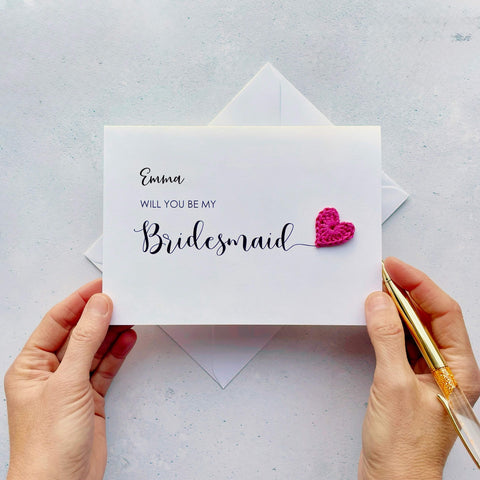 Emma
WILL YOU BE MY
Bridesmaid